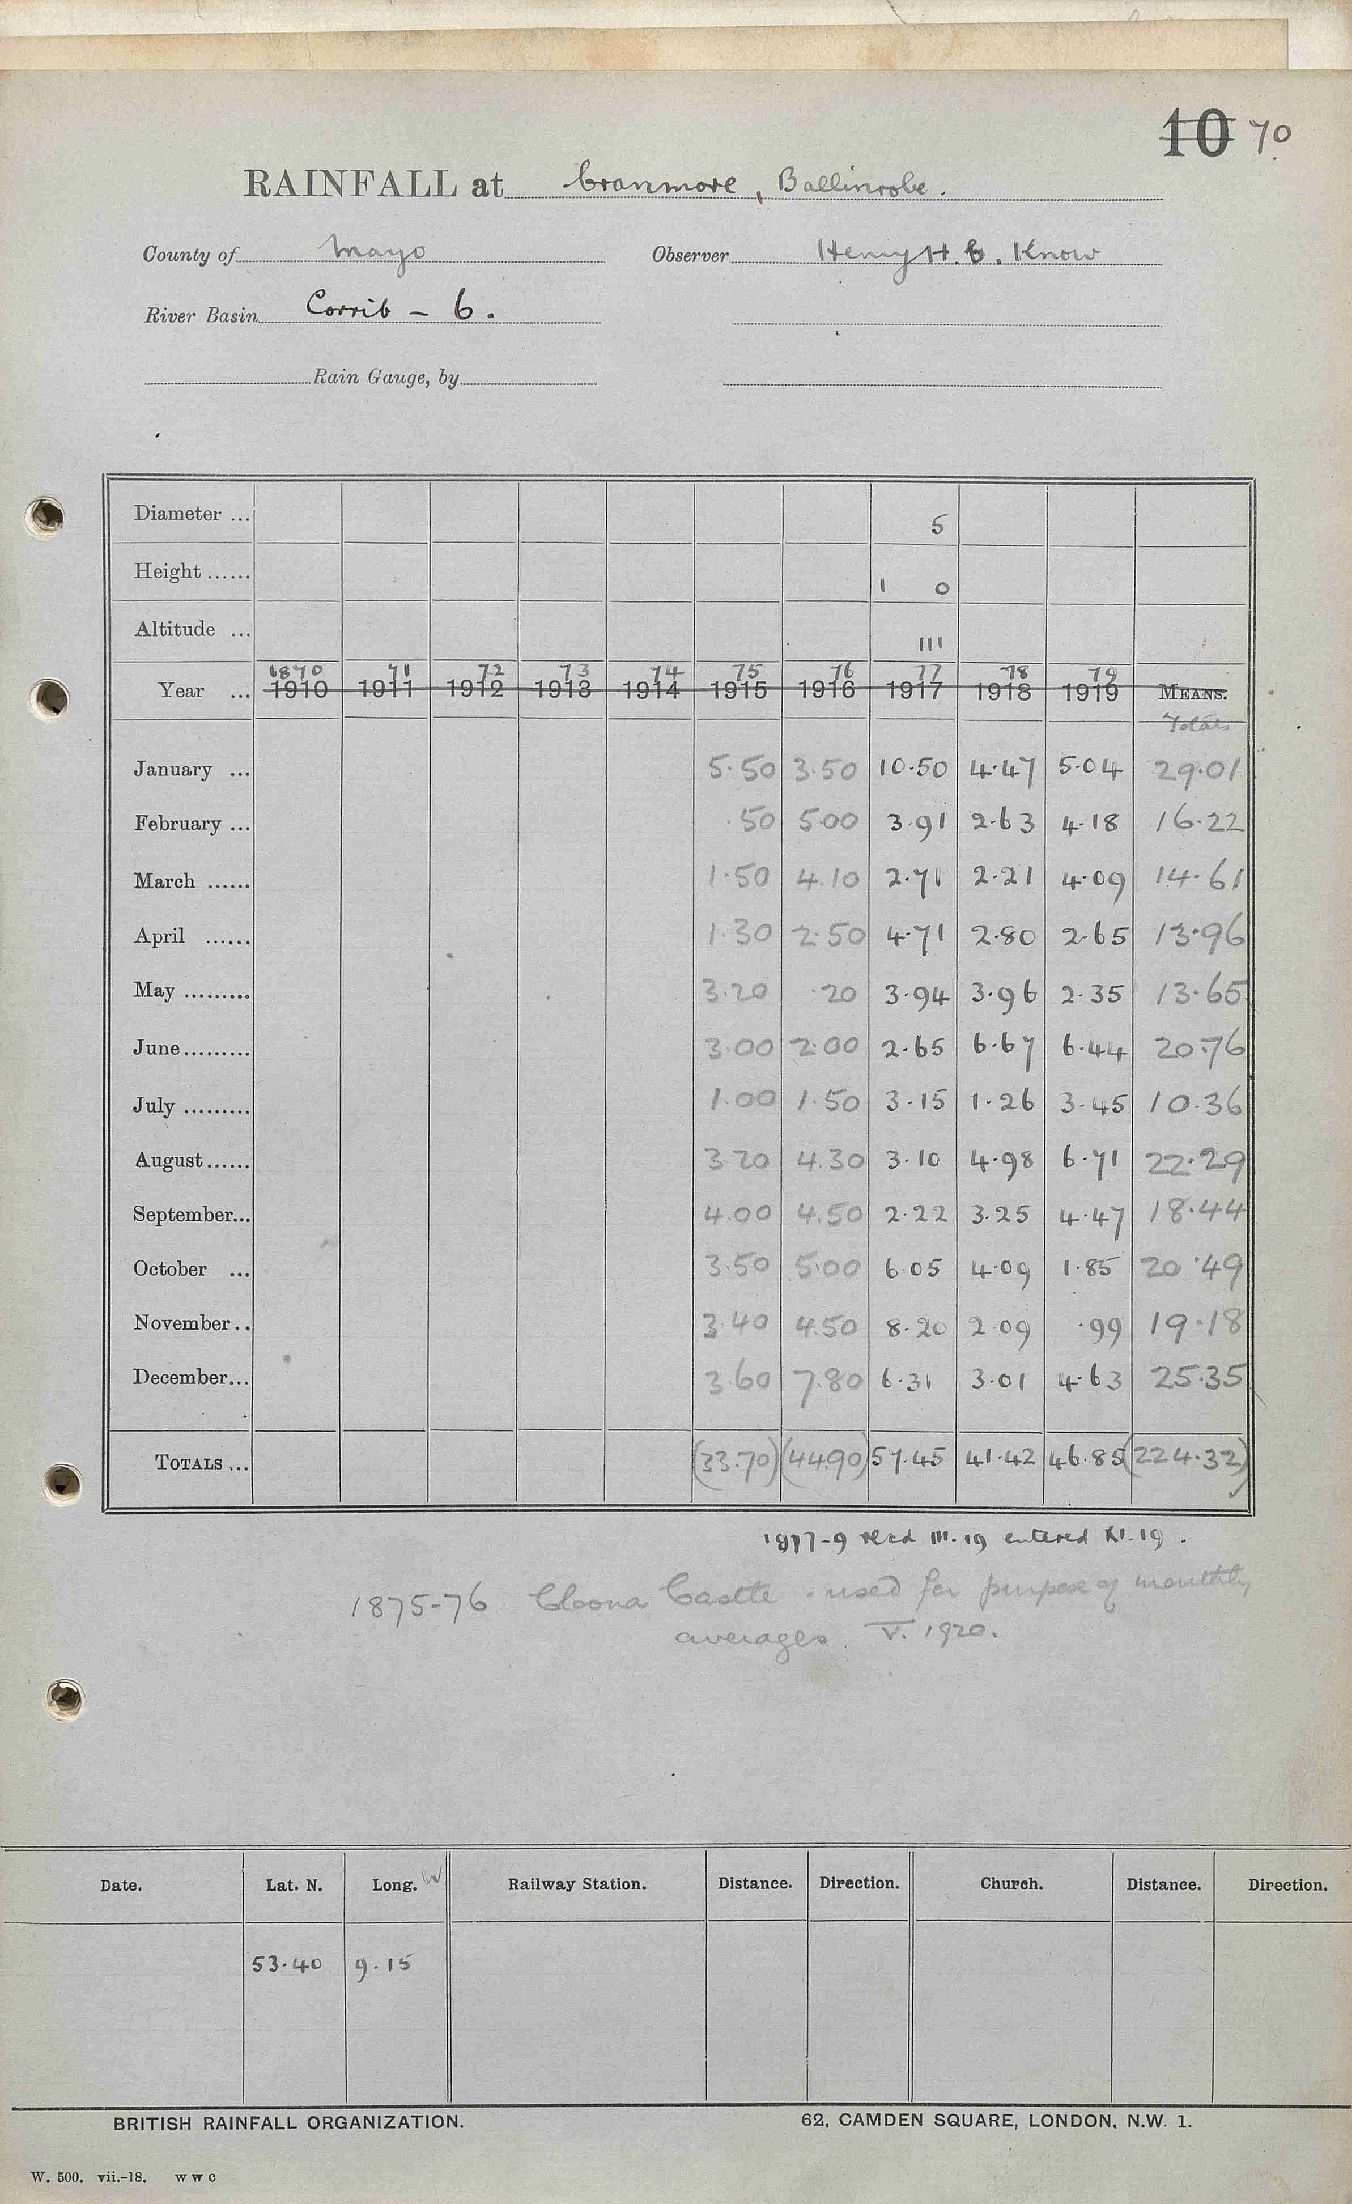 10 70
RAINFALL at Cranmore, Ballinrobe.
County of Mayo Observer Henry H. C. Knox
River Basin Corrib - 6.
Rain Gauge, by
Diameter ... 5
Height ...... 1 0
Altitude ... 111
1870 71 72 73 74 75 76 77 78 79
Year ... 1910 1911 1912 1913 1914 1915 1916 1917 1918 1919 MEANS.
Totals
January ... 5.50 3.50 10.50 4.47 5.04 29.01
February ... .50 5.00 3.91 2.63 4.18 16.22
March ...... 1.50 4.10 2.71 2.21 4.09 14.61
April ...... 1.30 2.50 4.71 2.80 2.65 13.96
May ......... 3.20 .20 3.94 3.96 2.35 13.65
June......... 3.00 2.00 2.65 6.67 6.44 20.76
July ......... 1.00 1.50 3.15 1.26 3.45 10.36
August...... 3.20 4.30 3.10 4.98 6.71 22.29
September... 4.00 4.50 2.22 3.25 4.47 18.44
October ... 3.50 5.00 6.05 4.09 1.85 20.49
November.. 3.40 4.50 8.20 2.09 .99 19.18
December... 3.60 7.80 6.31 3.01 4.63 25.35
TOTALS ... (33.70) (44.90) 57.45 41.42 46.85 (224.32)
1877-9 recd III.19 entered XI.19.
1875-76 Cloona Castle used for purpose of monthly
averages. V. 1920.
Date. Lat. N. Long. W Railway Station. Distance. Direction. Church. Distance. Direction.
53.40 9.15
BRITISH RAINFALL ORGANIZATION. 62, CAMDEN SQUARE, LONDON, N.W. 1.
W. 500. vii.-18. W W C